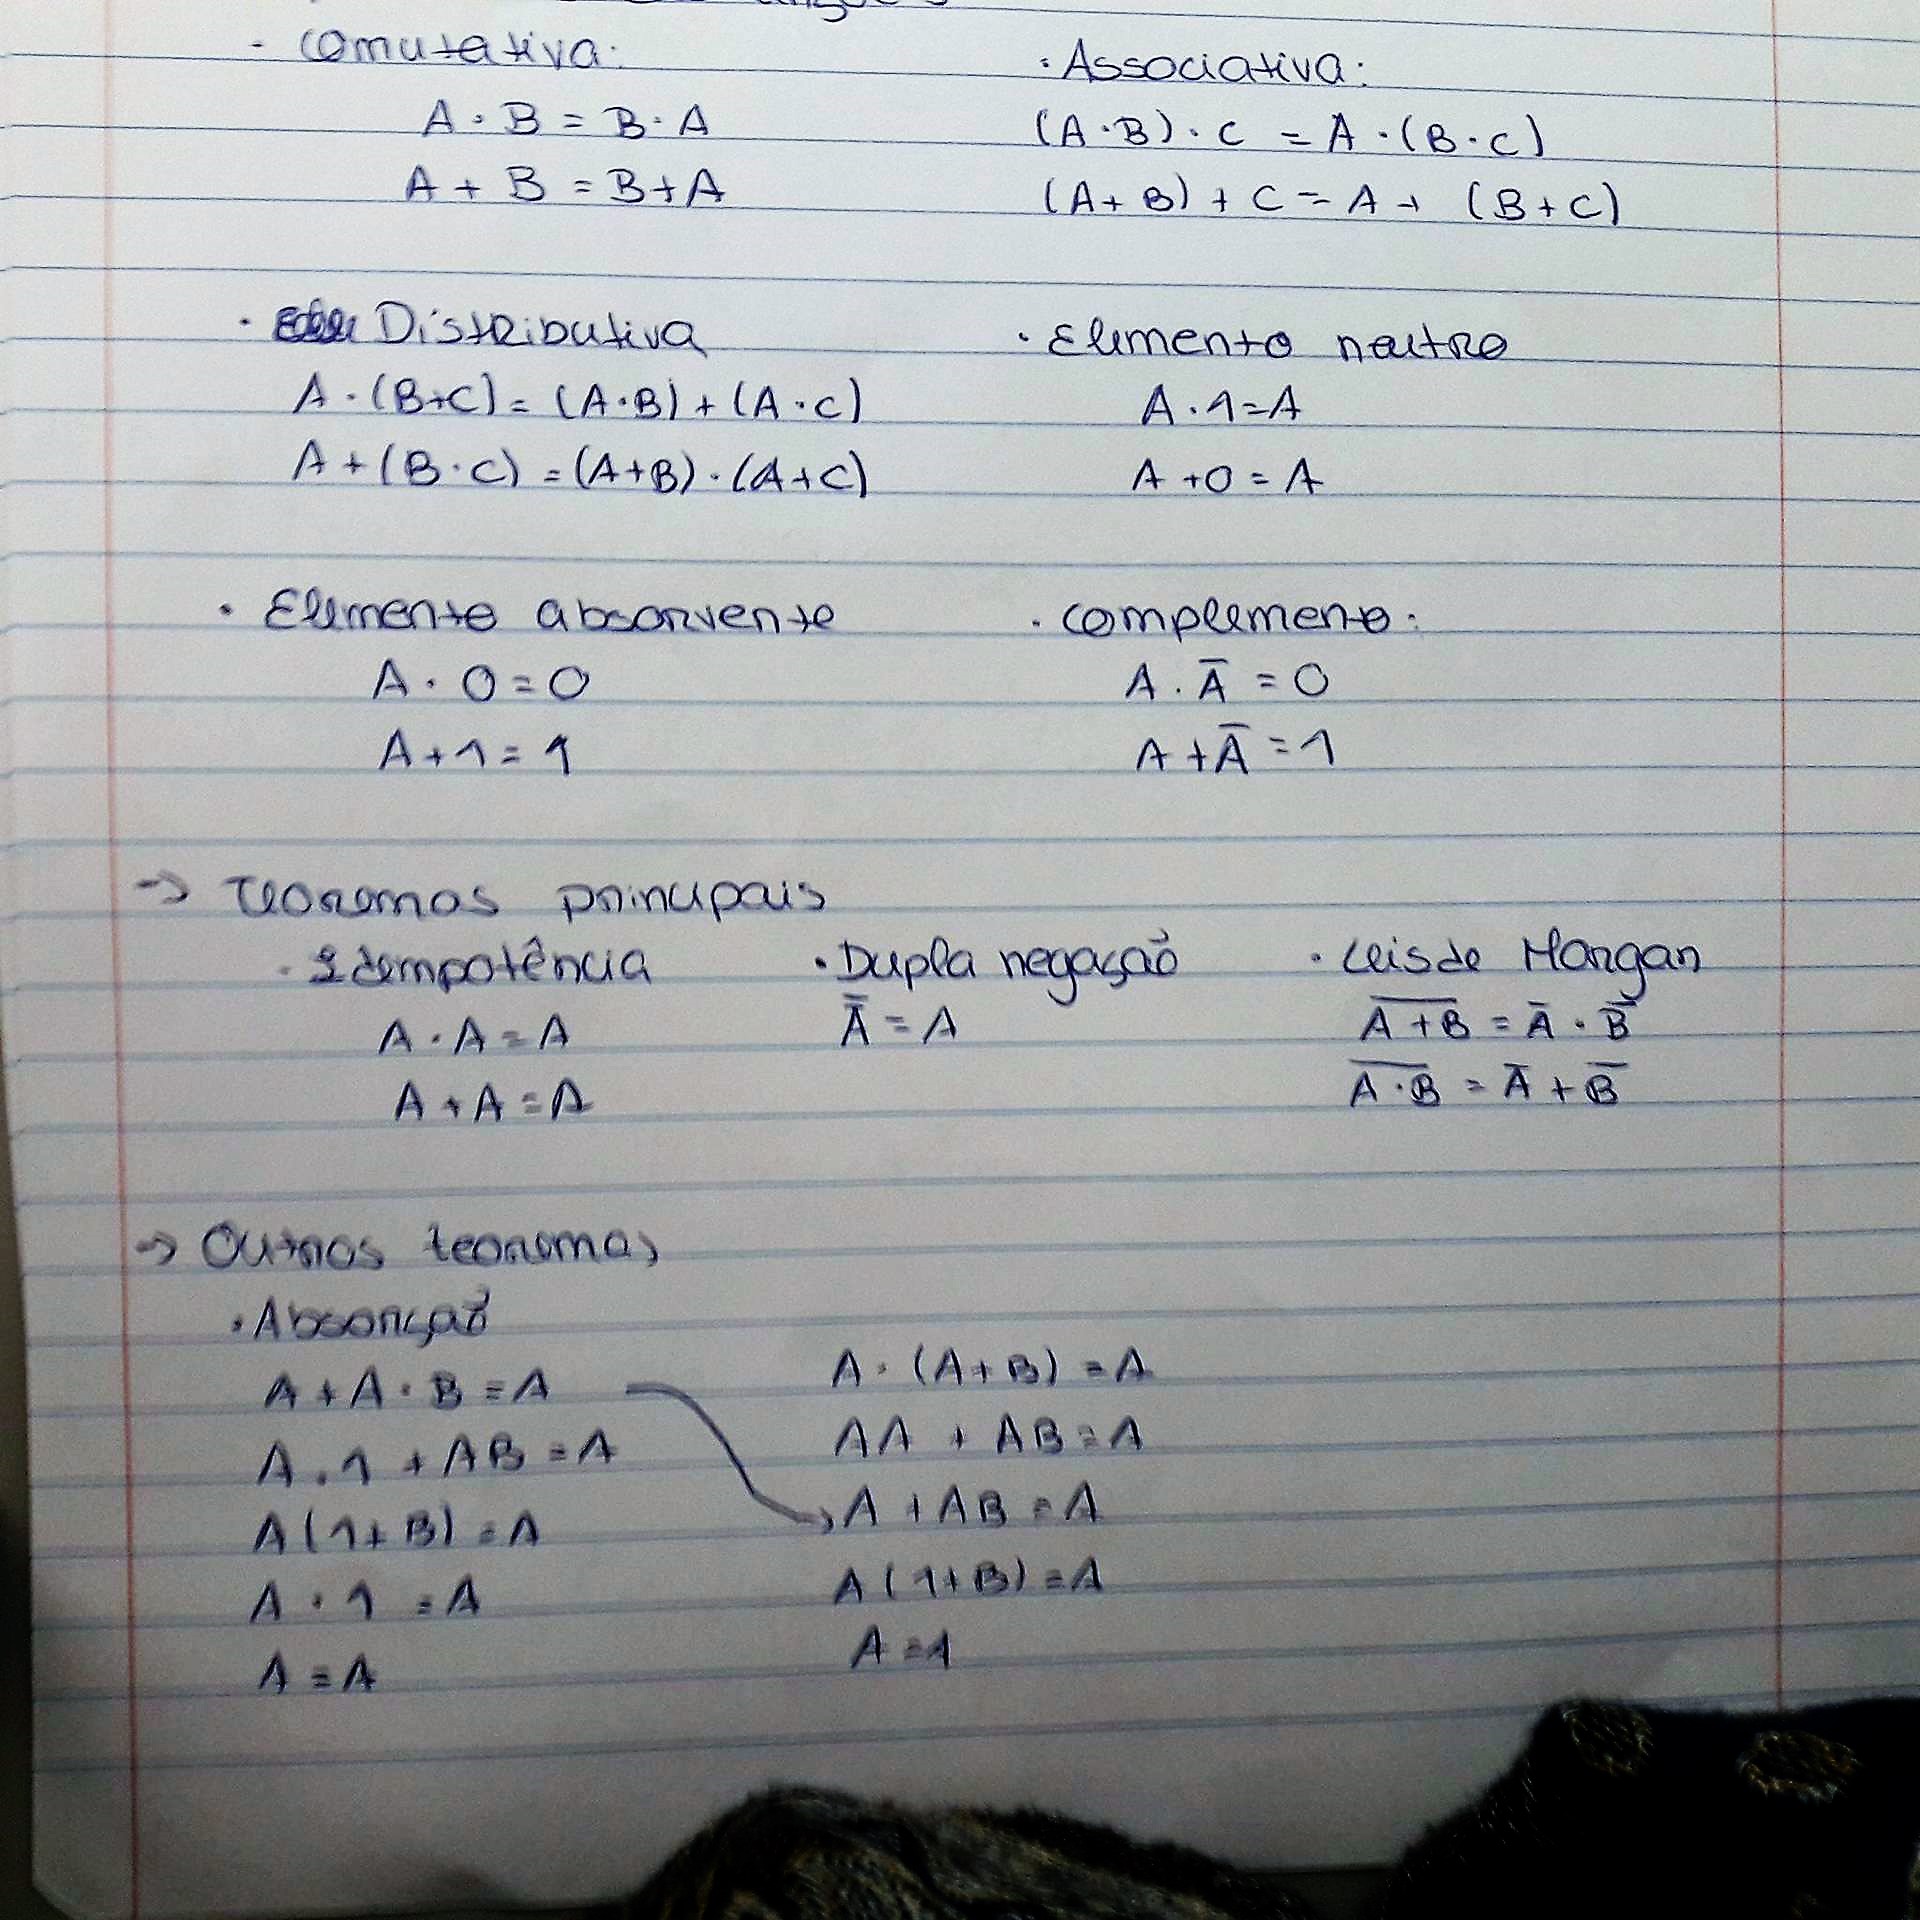 · Comutativa:
A · B = B · A
A + B = B + A
· Associativa:
(A · B) · C = A · (B · C)
(A + B) + C = A + (B + C)
· Distributiva
A · (B+C) = (A · B) + (A · C)
A + (B · C) = (A+B) · (A+C)
· Elemento neutro
A · 1 = A
A + 0 = A
· Elemento absorvente
A · 0 = 0
A + 1 = 1
· Complemento:
A · A̅ = 0
A + A̅ = 1
→ Teoremas principais
· Idempotência
A · A = A
A + A = A
· Dupla negação
A̿ = A
· Leis de Morgan
A̅ ̅+̅ ̅B̅ = A̅ · B̅
A̅ ̅·̅ ̅B̅ = A̅ + B̅
→ Outros teoremas
· Absorção
A + A · B = A
A · 1 + AB = A
A(1+B) = A
A · 1 = A
A = A
A · (A+B) = A
AA + AB = A
→ A + AB = A
A(1+B) = A
A = 1